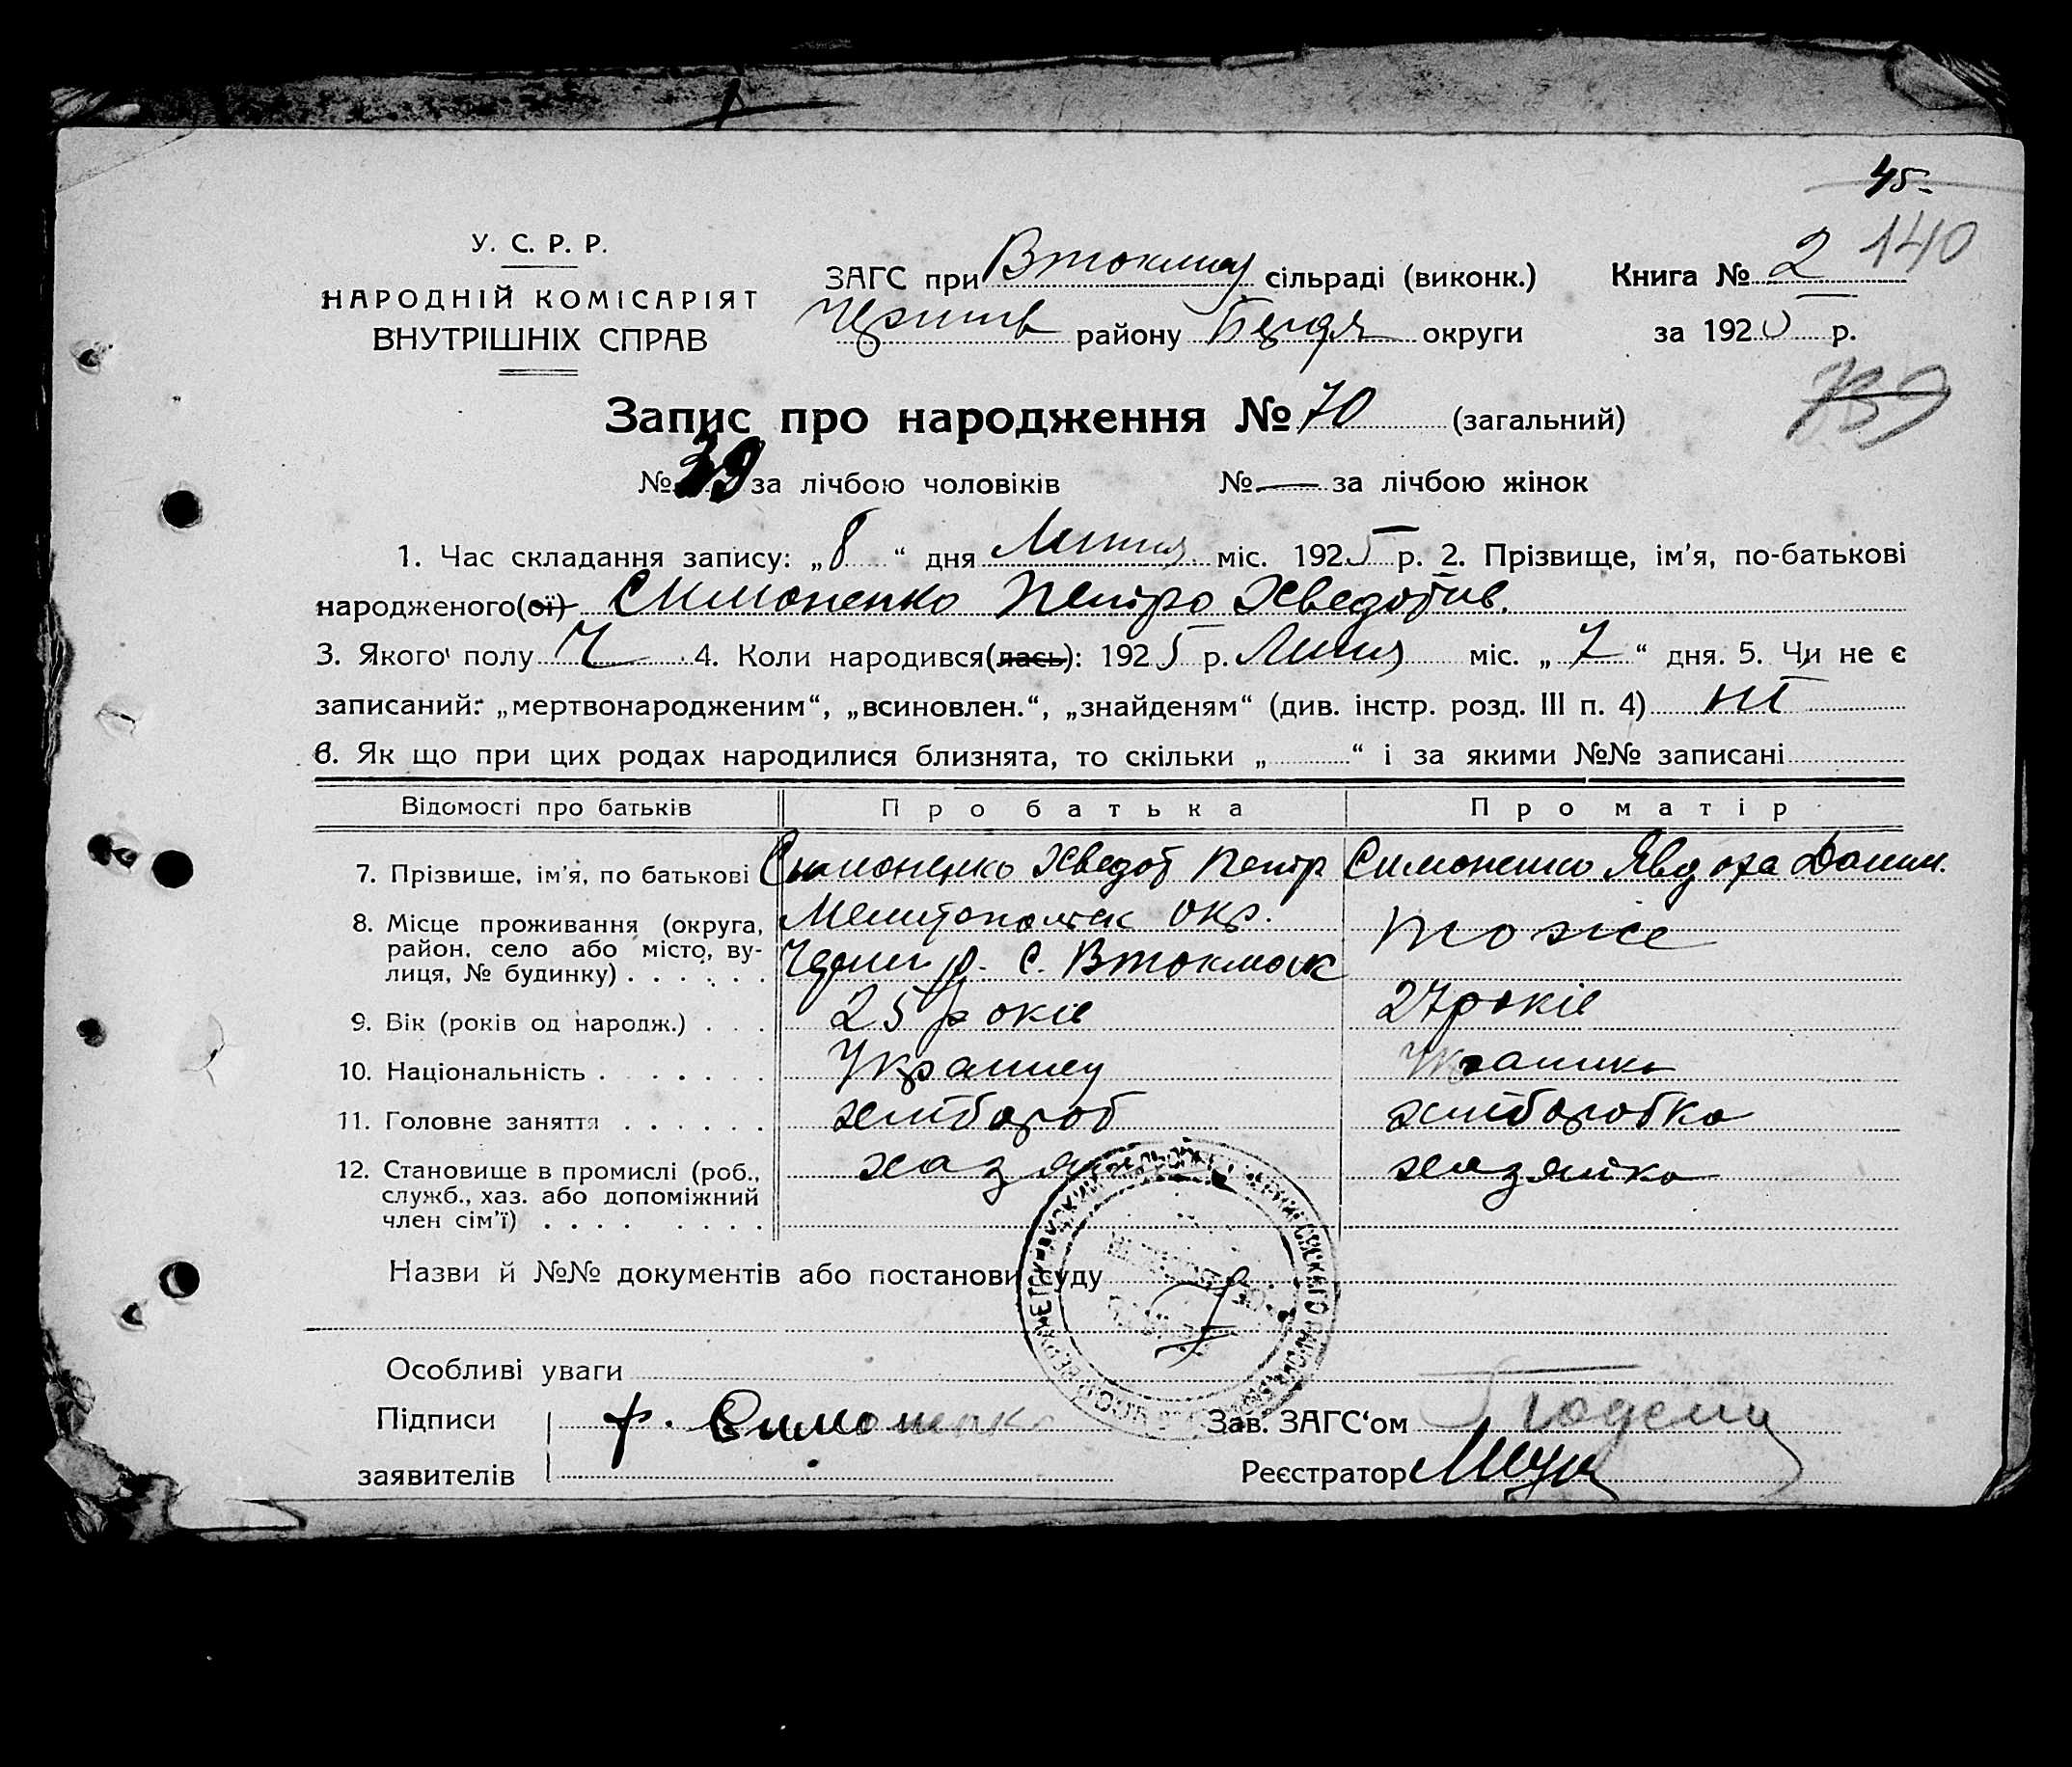 45
140
У. С. Р. Р.
НАРОДНІЙ КОМІСАРІЯТ
ВНУТРІШНІХ СПРАВ
ЗАГС при Втокмац сільраді (виконк.)
Черниг району Бердя округи
Книга № 2
за 1925 р.
Запис про народження № 70 (загальний)
№ 39 за лічбою чоловіків № — за лічбою жінок
1. Час складання запису: „8“ дня Липня міс. 1925 р. 2. Прізвище, ім'я, по-батькові
народженого(ої) Симоненко Петро Хведотів.
3. Якого полу Ч 4. Коли народився(лась): 1925 р. Липня міс. „7“ дня. 5. Чи не є
записаний: „мертвонародженим“, „всиновлен.“, „знайденям“ (див. інстр. розд. III п. 4) ні
6. Як що при цих родах народилися близнята, то скільки „ “ і за якими №№ записані
Відомості про батьків Про батька Про матір
7. Прізвище, ім'я, по батькові Симоненко Хведот Петр Симоненко Явдоха Данил.
8. Місце проживання (округа, район, село або місто, вулиця, № будинку) Мелитопольск окр.
Черниг р. с. Втокмак тоже
9. Вік (років од народж.) 25 років 27 років
10. Національність Українец Українка
11. Головне заняття хлібороб хліборобка
12. Становище в промислі (роб., служб., хаз. або допоміжний член сім'ї) хазяїн хазяйка
Назви й №№ документів або постанови суду
Особливі уваги
Підписи заявителів Ф. Симоненко
Зав. ЗАГС‘ом
Реєстратор